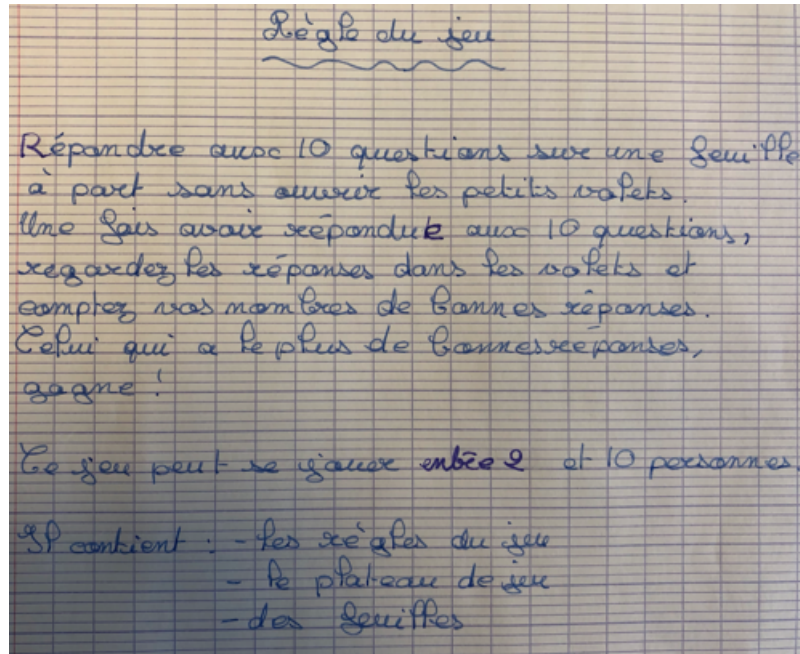 Règle du jeu
Répondre aux 10 questions sur une feuille
à part sans ouvrir les petits volets.
Une fois avoir répondue aux 10 questions,
regardez les réponses dans les volets et
comptez vos nombres de bonnes réponses.
Celui qui a le plus de bonnes réponses,
gagne !
Ce jeu peut se jouer entre 2 et 10 personnes.
Il contient : - les règles du jeu
- le plateau de jeu
- des feuilles